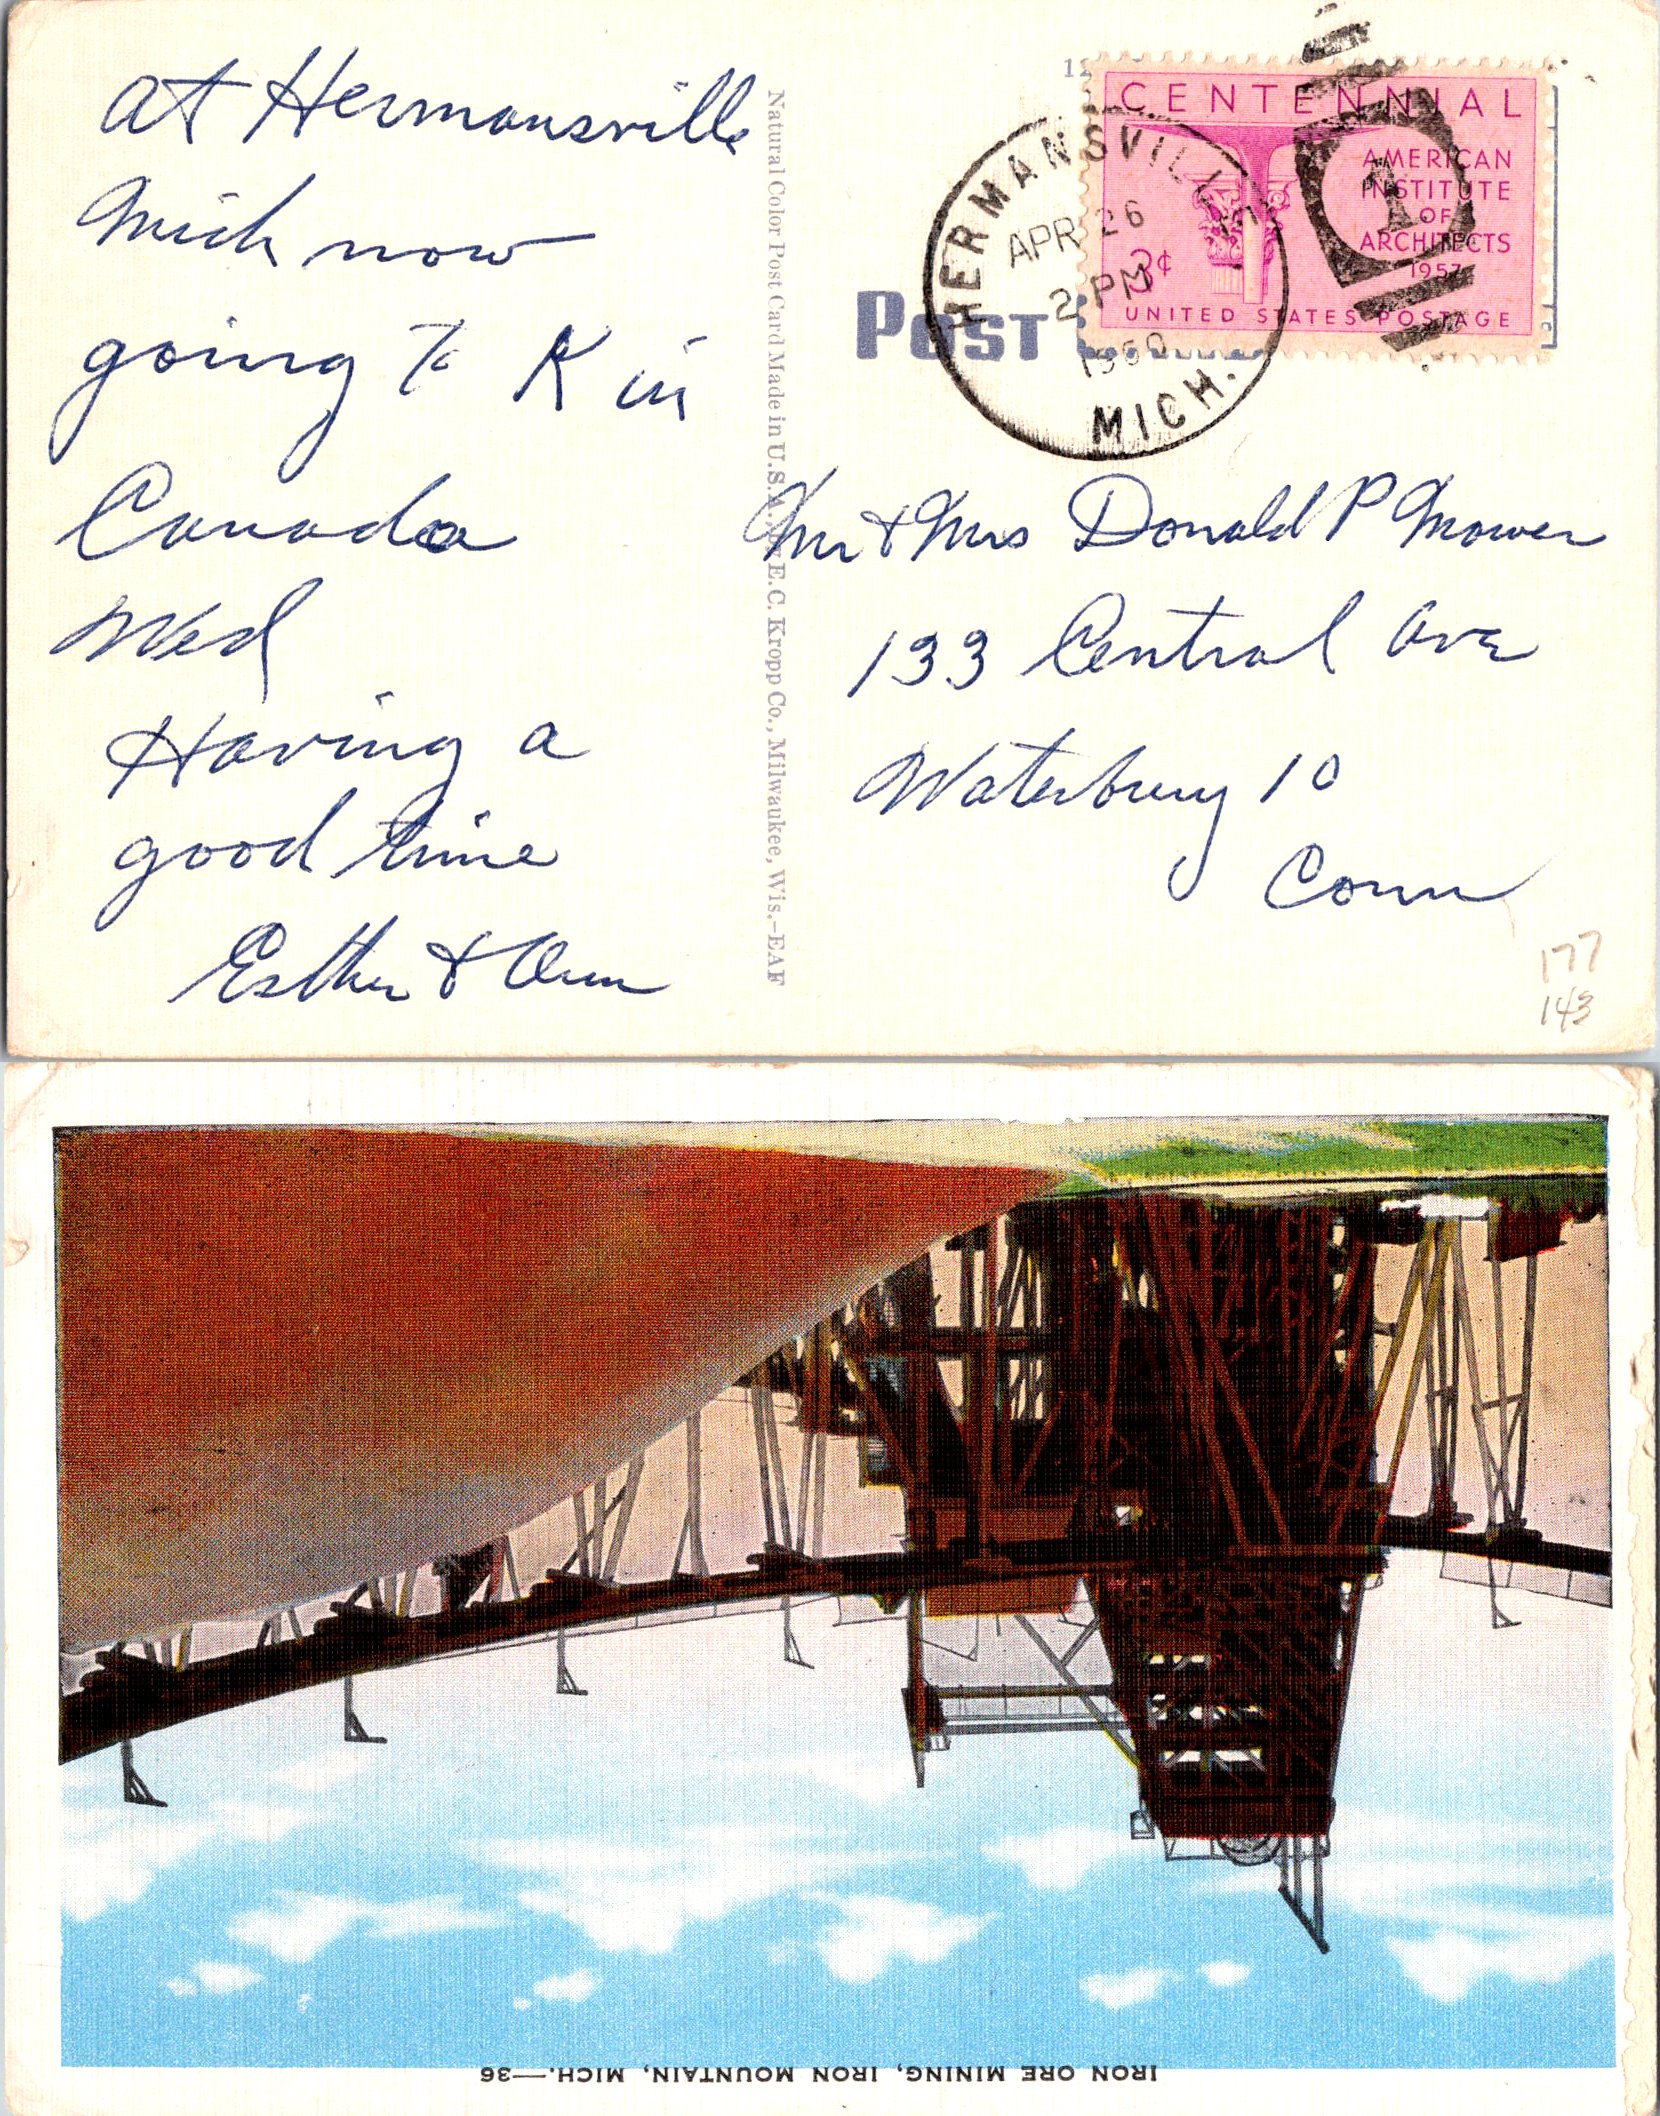 at Hermansville
Mich now
going to K in
Canada
Wed
Having a
good time
Esther & Ann
Natural Color Post Card Made in U.S.A. E. C. Kropp Co., Milwaukee, Wis.-EAF
CENTENNIAL
AMERICAN
INSTITUTE
OF
ARCHITECTS
1957
3¢
UNITED STATES POSTAGE
HERMANSVILLE
APR 26
2 PM
1960
MICH.
1
POST
Mr & Mrs Donald P Mower
133 Central Ave
Waterbury 10
Conn
177
143
IRON ORE MINING, IRON MOUNTAIN, MICH.—36